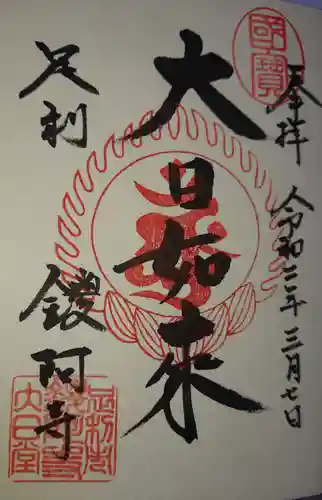 國寶
奉拝 令和二年三月七日
大日如来
足利 鑁阿寺